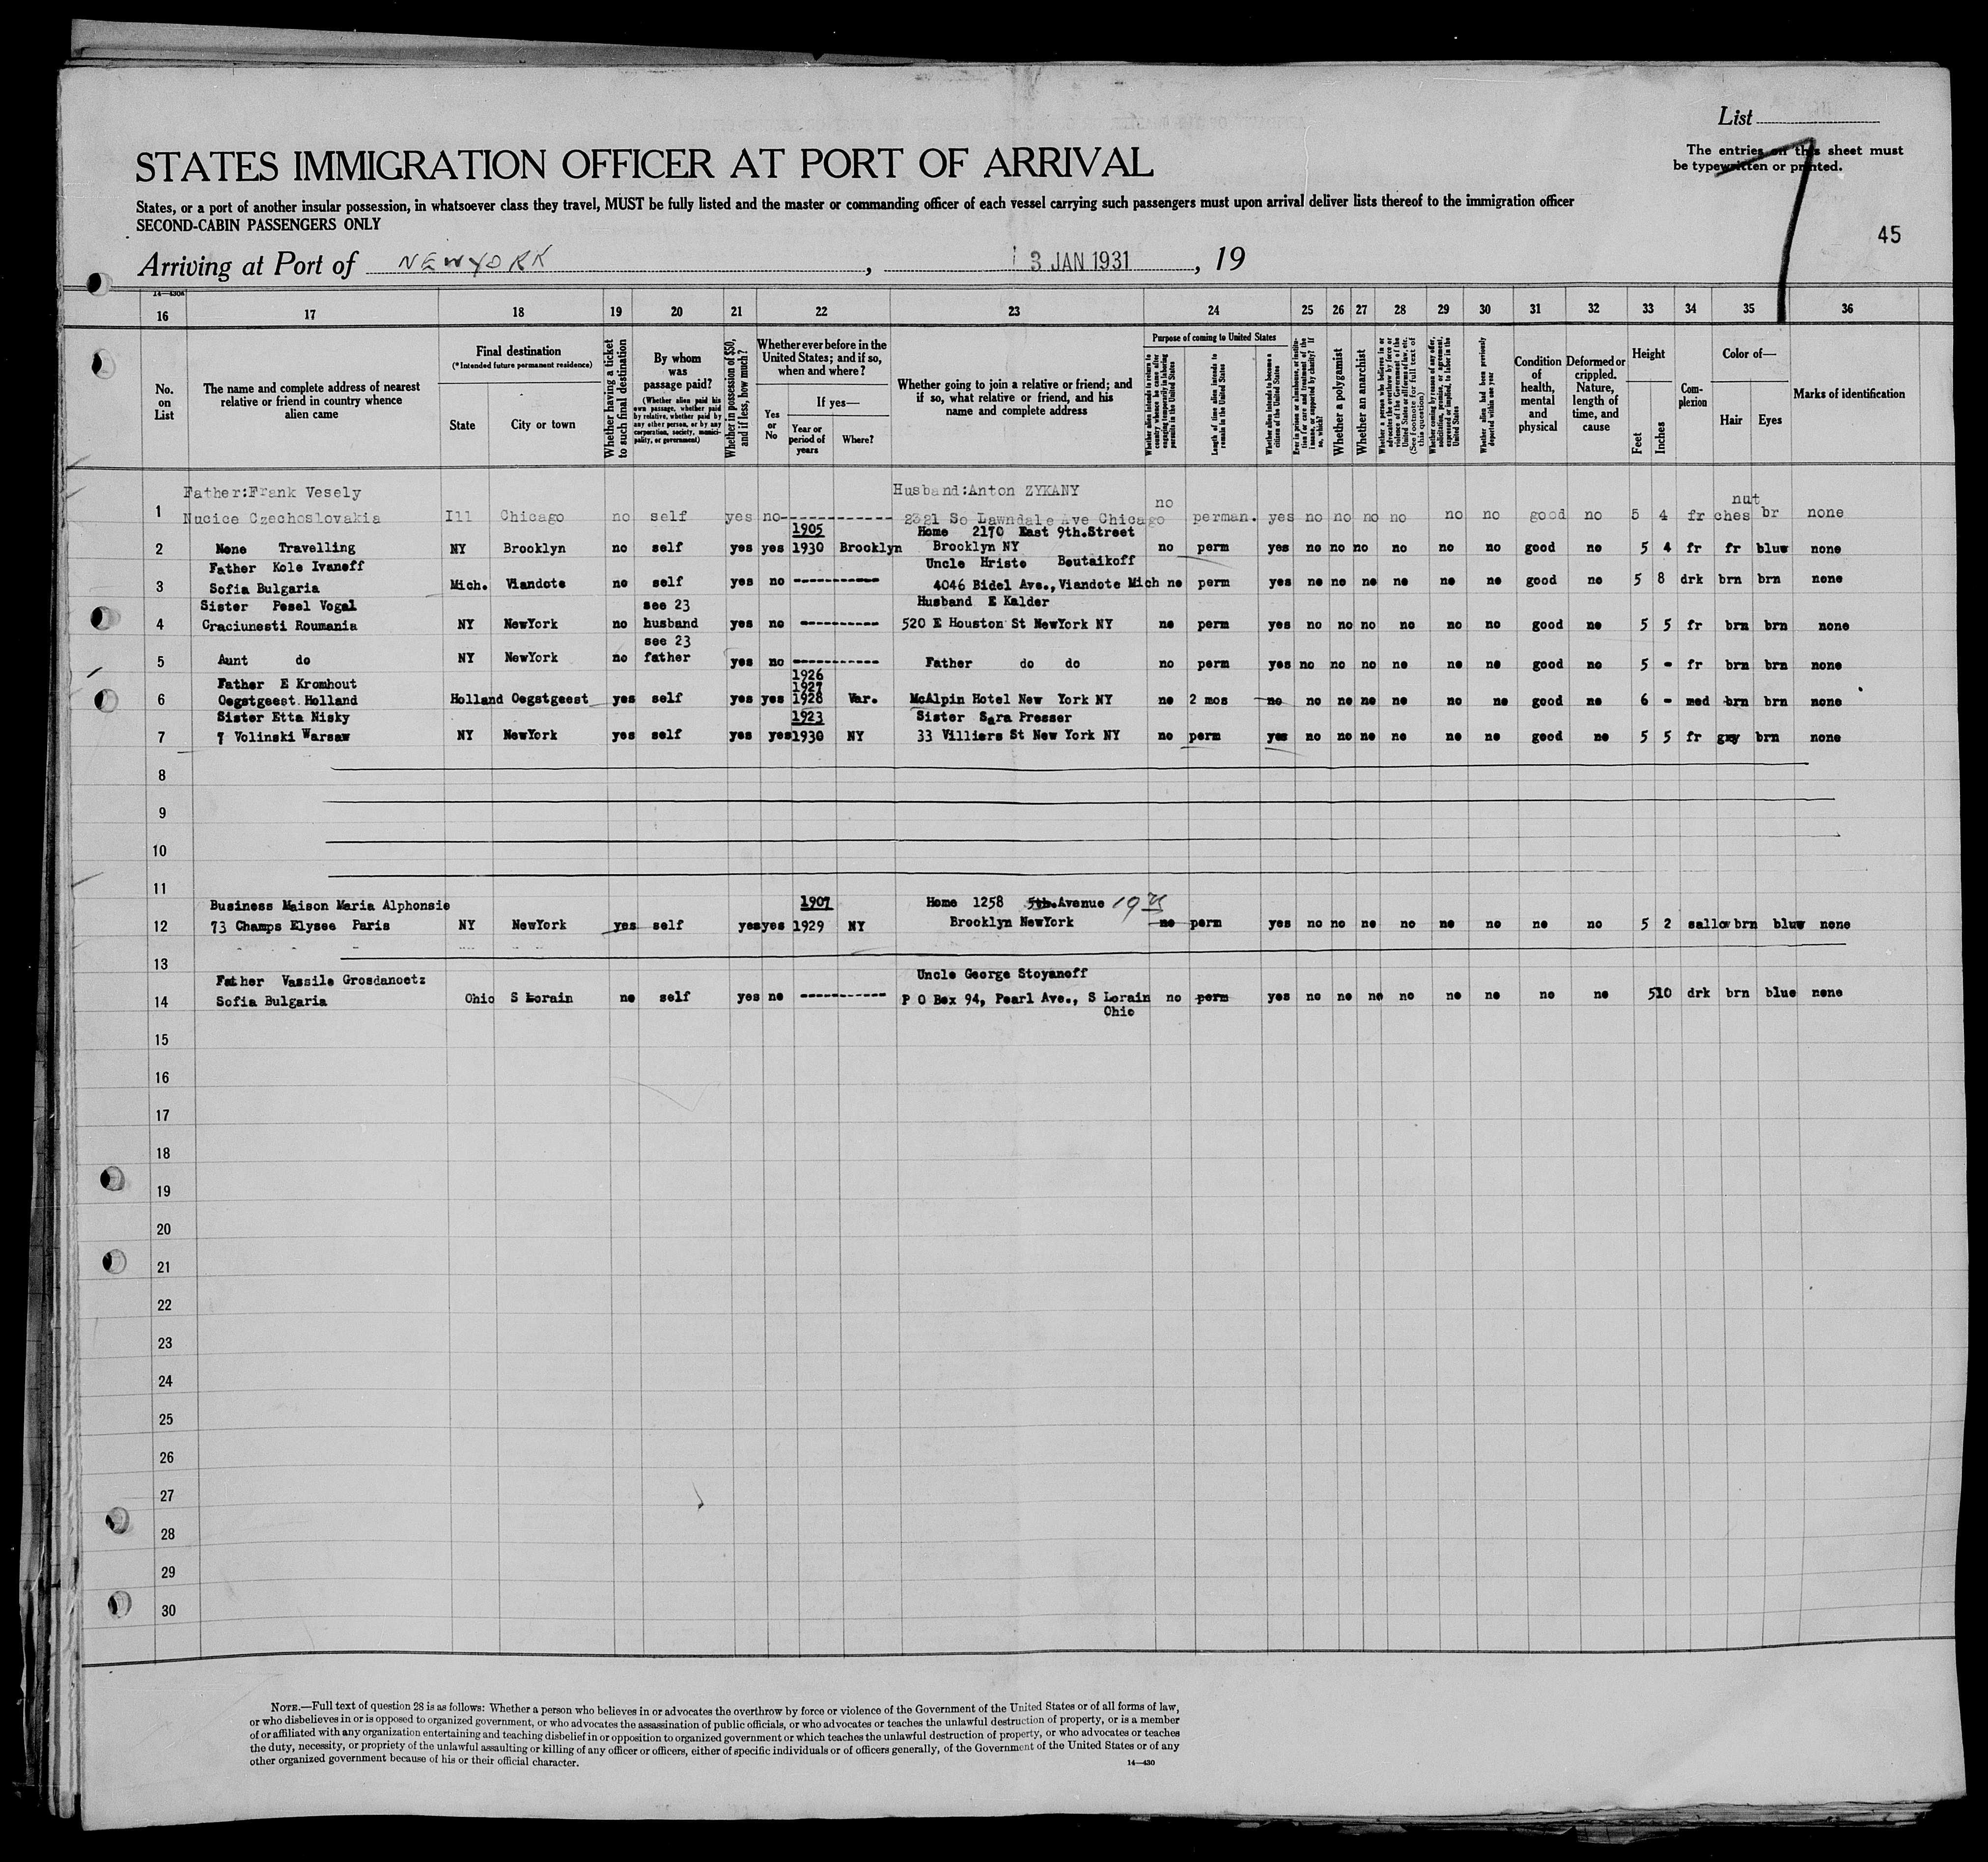 List
The entries on this sheet must
be typewritten or printed.
STATES IMMIGRATION OFFICER AT PORT OF ARRIVAL
States, or a port of another insular possession, in whatsoever class they travel, MUST be fully listed and the master or commanding officer of each vessel carrying such passengers must upon arrival deliver lists thereof to the immigration officer
SECOND-CABIN PASSENGERS ONLY
45
Arriving at Port of NEWYORK , 3 JAN 1931 , 19
14—430A
16 17 18 19 20 21 22 23 24 25 26 27 28 29 30 31 32 33 34 35 36
No. on List
The name and complete address of nearest relative or friend in country whence alien came
Final destination
(*Intended future permanent residence)
State
City or town
Whether having a ticket to such final destination
By whom was passage paid?
(Whether alien paid his own passage, whether paid by relative, whether paid by any other person, or by any corporation, society, municipality, or government)
Whether in possession of $50, and if less, how much?
Whether ever before in the United States; and if so, when and where?
Yes or No
If yes—
Year or period of years
Where?
Whether going to join a relative or friend; and if so, what relative or friend, and his name and complete address
Purpose of coming to United States
Whether alien intends to return to country whence he came after engaging temporarily in laboring pursuits in the United States
Length of time alien intends to remain in the United States
Whether alien intends to become a citizen of the United States
Ever in prison or almshouse, or institution for care and treatment of the insane, or supported by charity? If so, which?
Whether a polygamist
Whether an anarchist
Whether a person who believes in or advocates the overthrow by force or violence of the Government of the United States or all forms of law, etc. (See footnote for full text of this question)
Whether coming by reason of any offer, solicitation, promise, or agreement, expressed or implied, to labor in the United States
Whether alien had been previously deported within one year
Condition of health, mental and physical
Deformed or crippled. Nature, length of time, and cause
Height
Feet
Inches
Complexion
Color of—
Hair
Eyes
Marks of identification
Father:Frank Vesely Husband:Anton ZYKANY no nut
1 Nucice Czechoslovakia Ill Chicago no self yes no------------ 2321 So Lawndale Ave Chicago perman. yes no no no no no no good no 5 4 fr ches br none
1905 Home 2170 East 9th.Street
2 None Travelling NY Brooklyn no self yes yes 1930 Brooklyn Brooklyn NY no perm yes no no no no no no good no 5 4 fr fr bluw none
Father Kole Ivanoff Uncle Hriste Boutaikoff
3 Sofia Bulgaria Mich. Viandote no self yes no ----------- 4046 Bidel Ave., Viandote Mich no perm yes no no no no no no good no 5 8 drk brn brn none
Sister Pesel Vogal see 23 Husband E Kalder
4 Craciunesti Roumania NY NewYork no husband yes no ----------- 520 E Houston St NewYork NY no perm yes no no no no no no good no 5 5 fr brn brn none
see 23
5 Aunt do NY NewYork no father yes no ----------- Father do do no perm yes no no no no no no good no 5 - fr brn brn none
Father E Kromhout 1926
1927
6 Oegstgeest Holland Holland Oegstgeest yes self yes yes 1928 Var. McAlpin Hotel New York NY no 2 mos no no no no no no no good no 6 - med brn brn none
Sister Etta Nisky 1923 Sister Sara Presser
7 7 Volinski Warsaw NY NewYork yes self yes yes1930 NY 33 Villiers St New York NY no perm yes no no no no no no good no 5 5 fr gry brn none
8
9
10
11
Business Maison Maria Alphonsie 1907 Home 1258 5th.Avenue
12 73 Champs Elysee Paris NY NewYork yes self yesyes 1929 NY Brooklyn NewYork no perm yes no no no no no no no no 5 2 sallow brn bluw none
13
Father Vassile Grosdanoetz Uncle George Stoyanoff
14 Sofia Bulgaria Ohio S Lorain no self yes no ----------- P O Box 94, Pearl Ave., S Lorain no perm yes no no no no no no no no 510 drk brn blue none
Ohio
15
16
17
18
19
20
21
22
23
24
25
26
27
28
29
30
NOTE.—Full text of question 28 is as follows: Whether a person who believes in or advocates the overthrow by force or violence of the Government of the United States or of all forms of law,
or who disbelieves in or is opposed to organized government, or who advocates the assassination of public officials, or who advocates or teaches the unlawful destruction of property, or is a member
of or affiliated with any organization entertaining and teaching disbelief in or opposition to organized government or which teaches the unlawful destruction of property, or who advocates or teaches
the duty, necessity, or propriety of the unlawful assaulting or killing of any officer or officers, either of specific individuals or of officers generally, of the Government of the United States or of any
other organized government because of his or their official character.
14—430